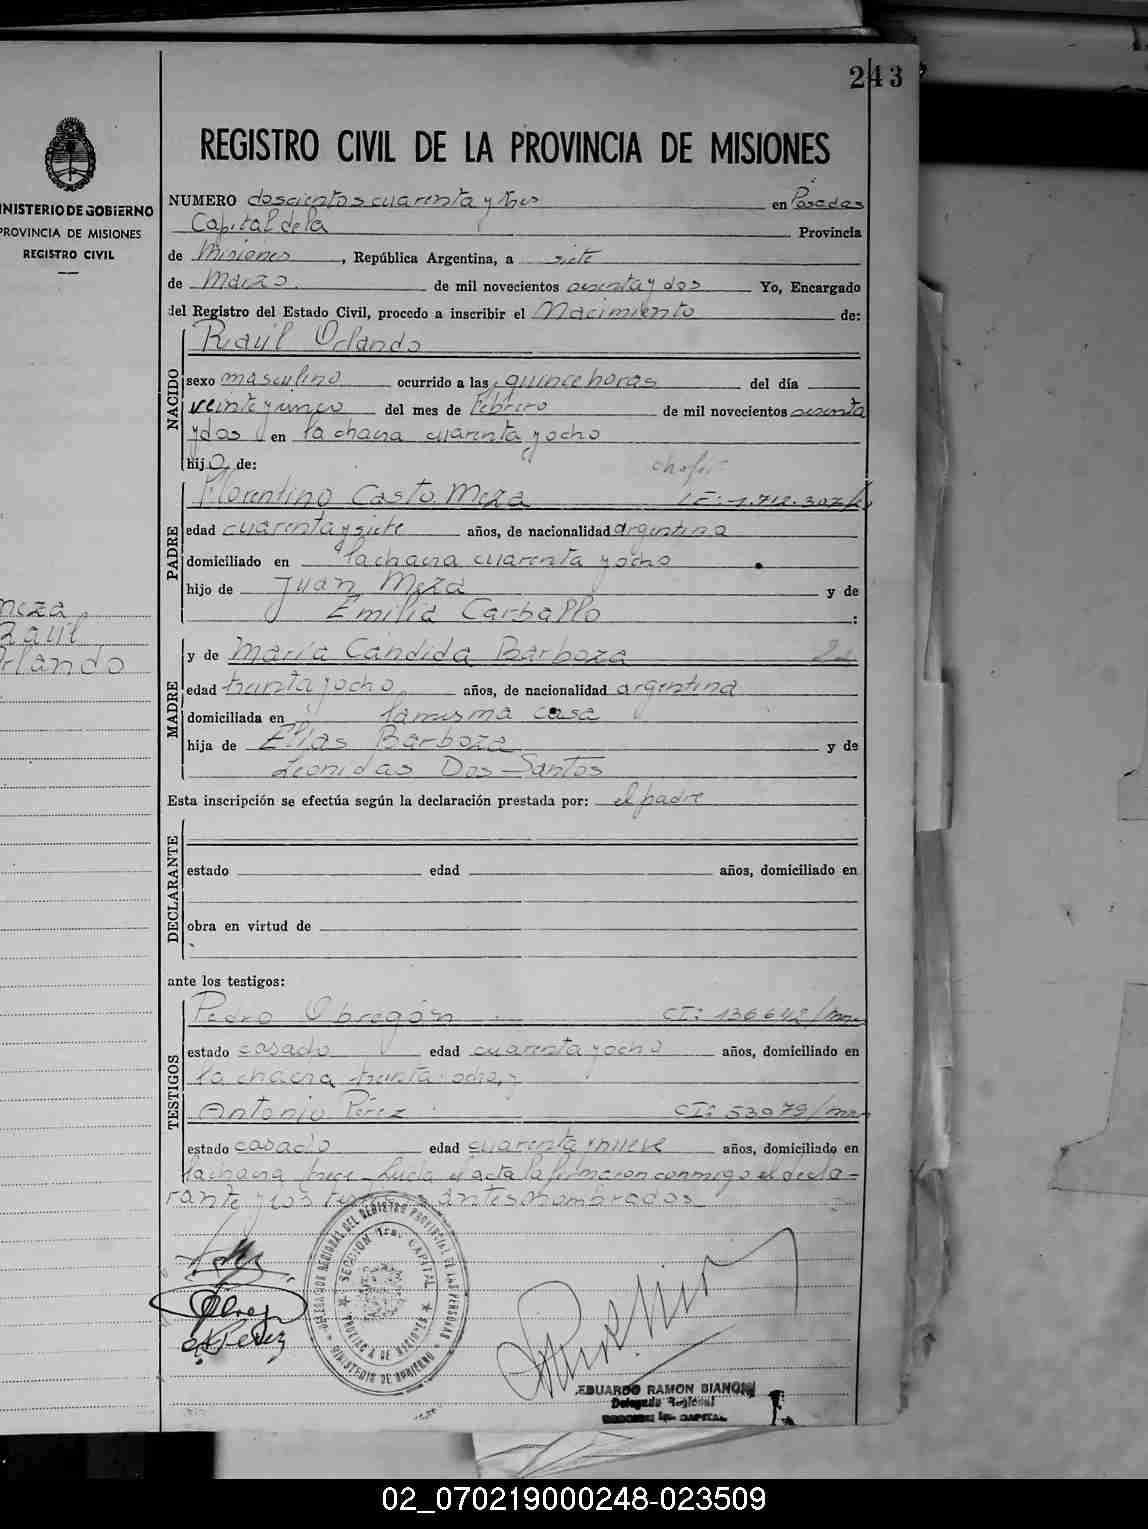 243
MINISTERIO DE GOBIERNO
PROVINCIA DE MISIONES
REGISTRO CIVIL
Meza
Raúl
Orlando
REGISTRO CIVIL DE LA PROVINCIA DE MISIONES
NUMERO doscientos cuarenta y tres en Posadas
Capital de la Provincia
de Misiones, República Argentina, a siete
de Marzo. de mil novecientos sesenta y dos Yo, Encargado
del Registro del Estado Civil, procedo a inscribir el Nacimiento de:
NACIDO
Raúl Orlando
sexo masculino ocurrido a las quince horas del día
veinte y cinco del mes de Febrero de mil novecientos sesenta
y dos en la chacra cuarenta y ocho
hijo de: chofer
PADRE
Florentino Casto Meza LE: 1.712.307
edad cuarenta y siete años, de nacionalidad argentina
domiciliado en la chacra cuarenta y ocho
hijo de Juan Meza y de
Emilia Carballo :
MADRE
y de María Cándida Barboza
edad treinta y ocho años, de nacionalidad argentina
domiciliada en la misma casa
hija de Elias Barboza y de
Leonidas Dos-Santos
Esta inscripción se efectúa según la declaración prestada por: el padre
DECLARANTE
estado edad años, domiciliado en
obra en virtud de
ante los testigos:
TESTIGOS
Pedro Obregón CI: 136642/mnes
estado casado edad cuarenta y ocho años, domiciliado en
la chacra treinta ocho, y
Antonio Pérez CI: 53979/mnes
estado casado edad cuarenta y nueve años, domiciliado en
la chacra trece. Leída el acta la firmaron conmigo el decla-
rante y los antes nombrados
DELEGACION REGIONAL DEL REGISTRO PROVINCIAL DE LAS PERSONAS
SECCION 1ra. CAPITAL
PROVINCIA DE MISIONES
MINISTERIO DE GOBIERNO
Obreg
A Perez
EDUARDO RAMON BIANCHI
Delegado Regional
SECCION 1ra. CAPITAL
02_070219000248-023509